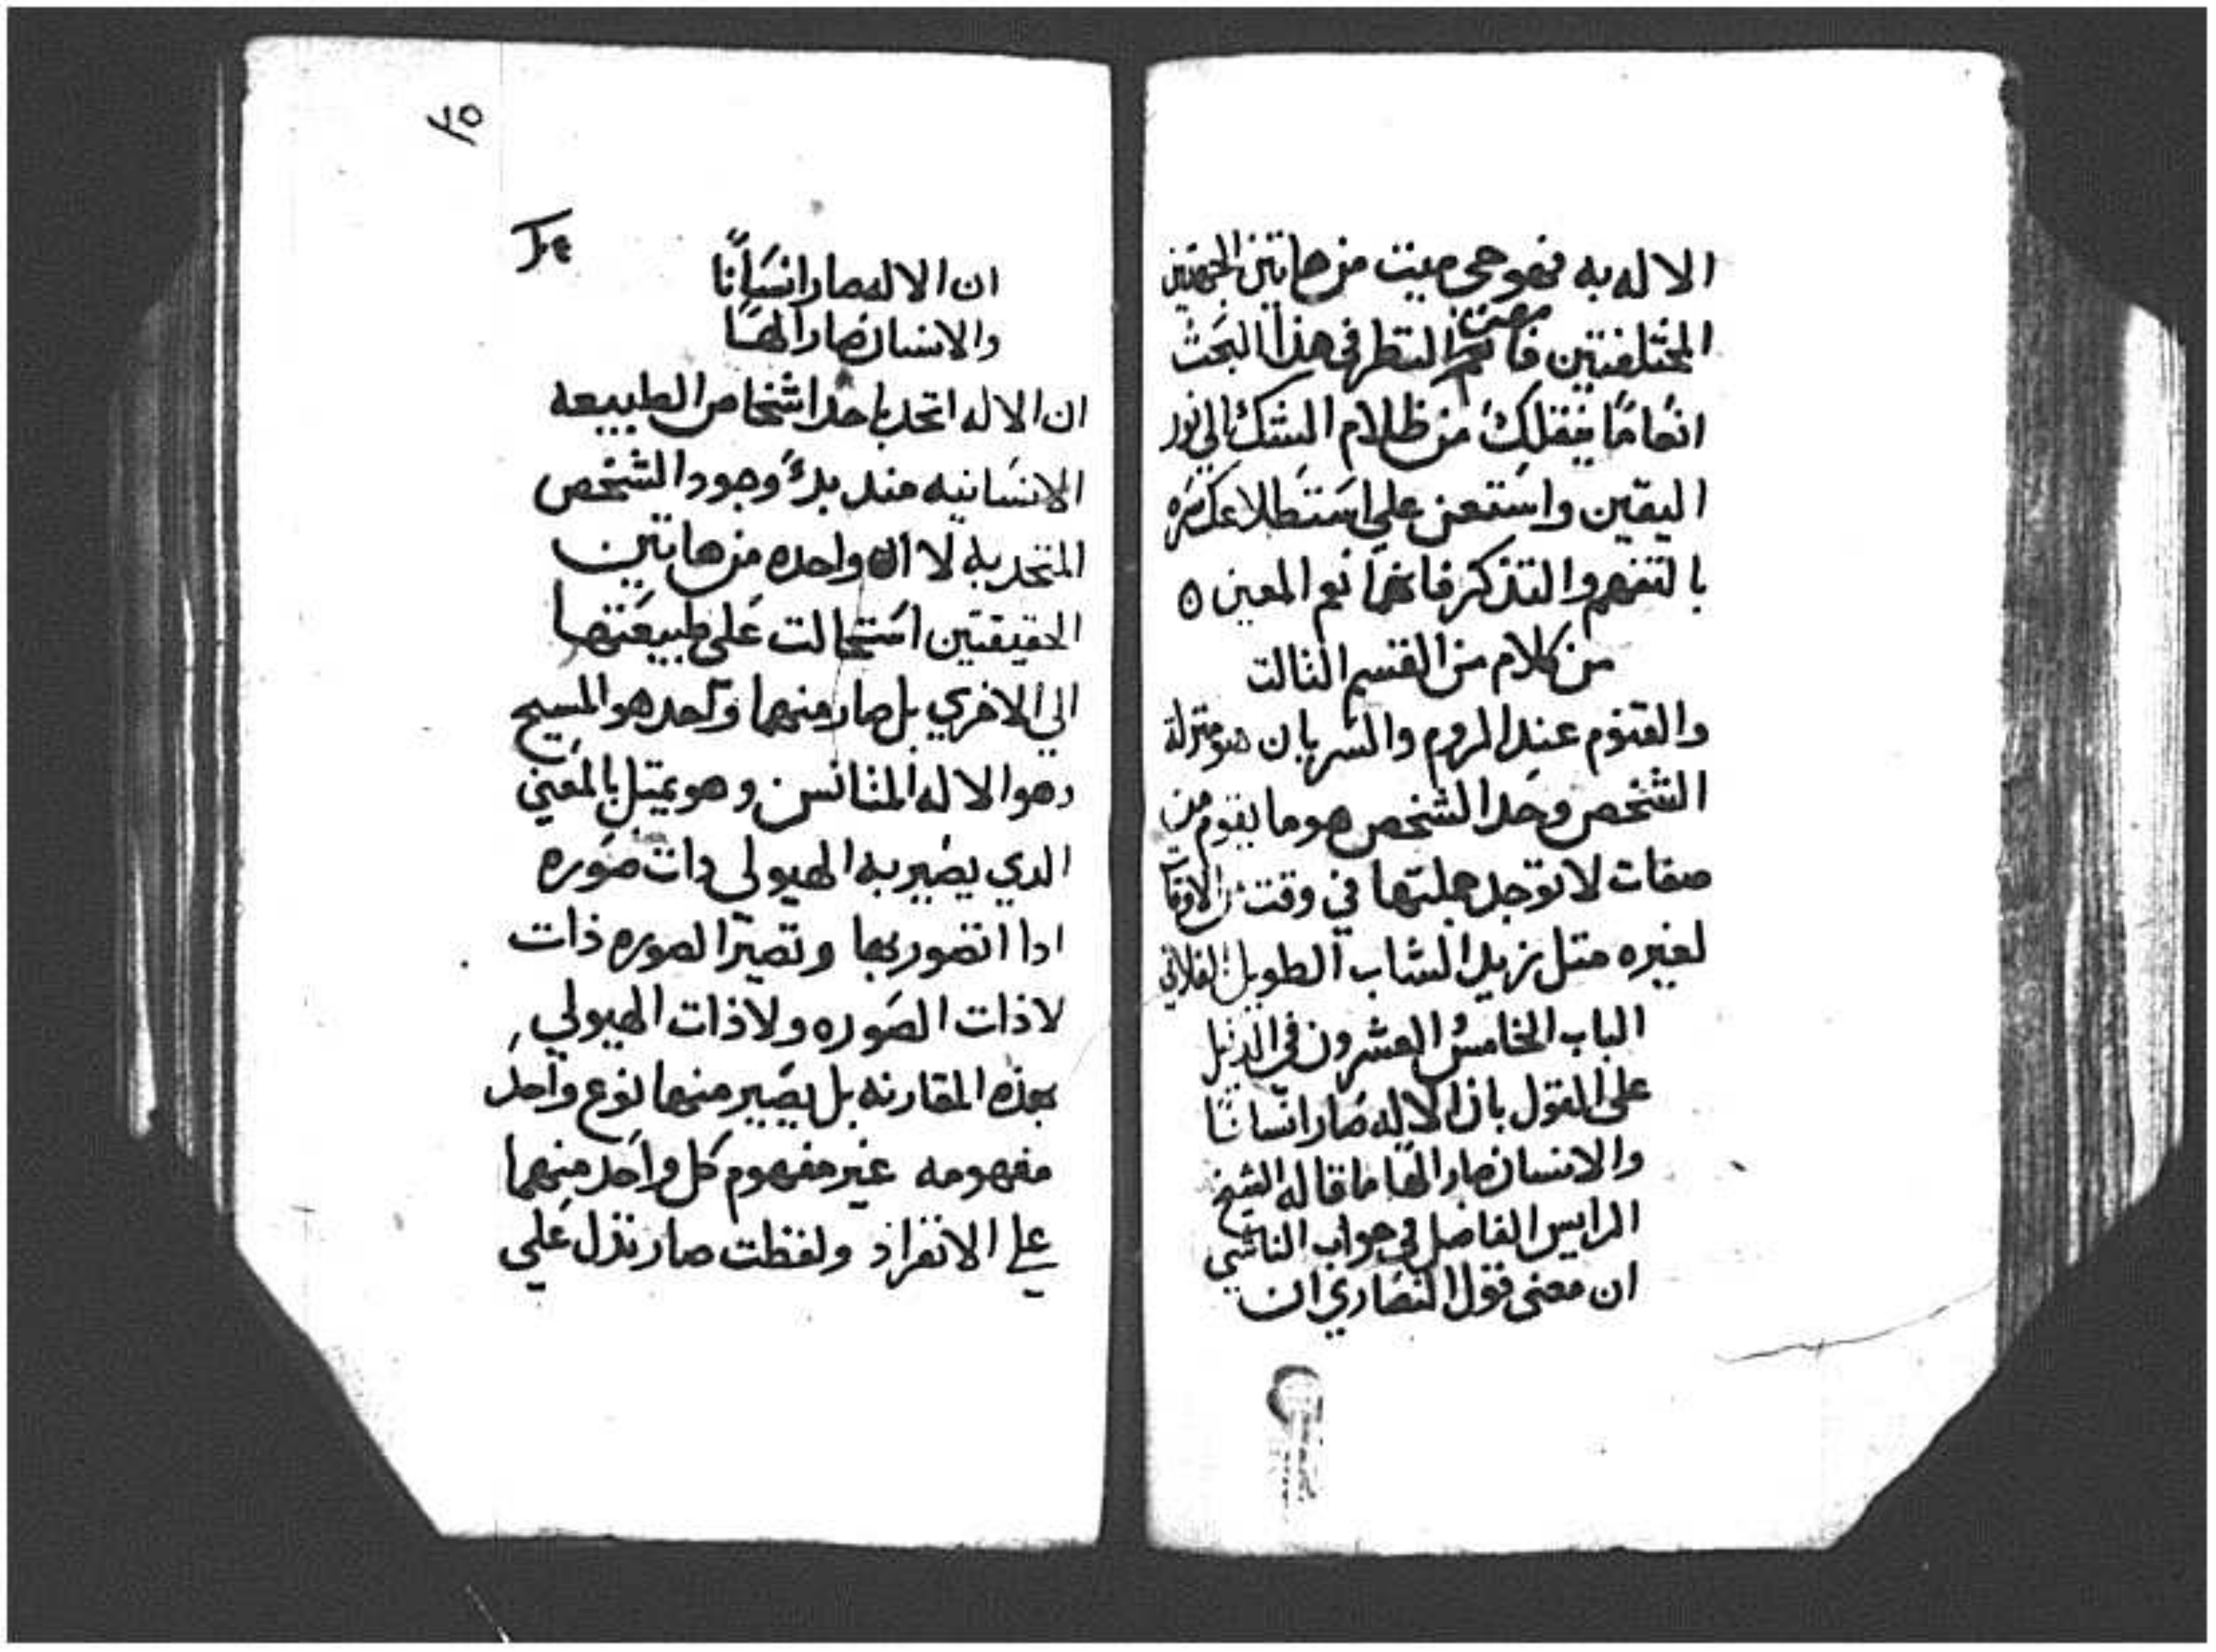 الاله به فهو حي ميت من هاتين الجهتين
المختلفتين فامعن النظر في هذا البحث
انعامًا ينقلك من ظلام الشك الي نور
اليقين واستعن علي استطلاعك سره
بالتفهم والتذكر فانهما نعم المعين ه
من كلام من القسم الثالت
والقنوم عند الروم والسريان هو منزلة
الشخص وحد الشخص هو ما يقوم من
صفات لا توجد جملتها في وقت من الاوقات
لغيره متل زيد الشاب الطويل الفلاني
الباب الخامس والعشرون في الدليل
على القول بان الاله صار انسانا
والانسان صار الها ما قاله الشيخ
الرايس الفاضل في جواب الناشي
ان معنى قول النصاري ان
٢٥
ان الاله صار انسانًا
والانسان صار الهًا
ان الاله اتحد باحد اشخاص الطبيعه
الانسانيه منذ بدءُ وجود الشخص
المتحد به لا ان واحده من هاتين
الحقيقتين استحالت على طبيعتها
الي الاخري بل صار منهما واحد هو المسيح
وهو الاله المتانس وهو يمتل بالمعني
الدي يصير به الهيولى دات صوره
ادا اتصور بها وتصير الصوره ذات
لا ذات الصوره ولا ذات الهيولي
بهذه المقارنه بل يصير منهما نوع واحد
مفهومه غير مفهوم كل واحد منهما
علي الانفراد ولفظت صار تدل علي